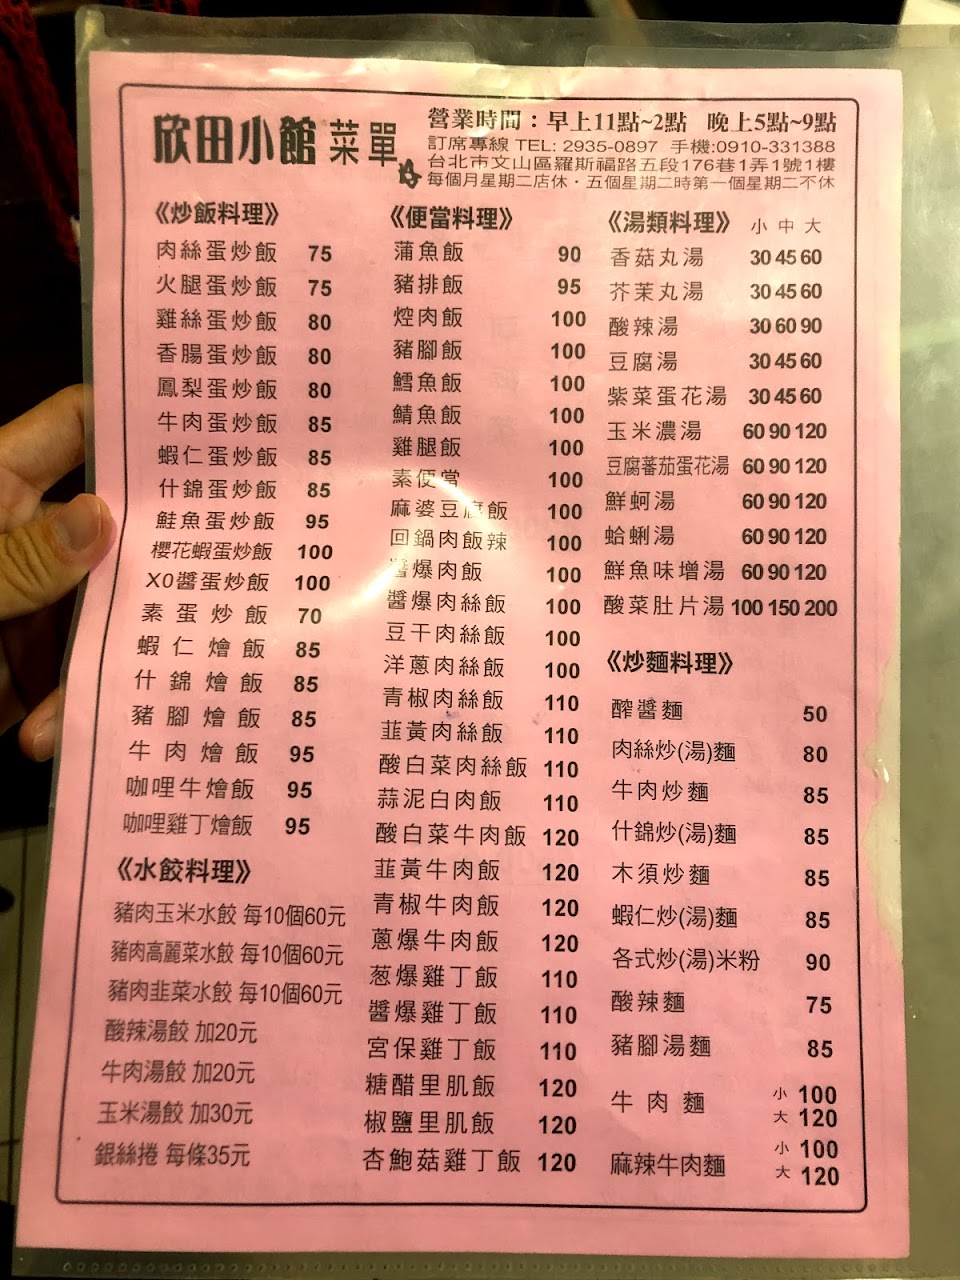 欣田小館 菜單
營業時間：早上11點~2點 晚上5點~9點
訂席專線 TEL: 2935-0897 手機:0910-331388
台北市文山區羅斯福路五段176巷1弄1號1樓
每個月星期二店休．五個星期二時第一個星期二不休
《炒飯料理》
肉絲蛋炒飯 75
火腿蛋炒飯 75
雞絲蛋炒飯 80
香腸蛋炒飯 80
鳳梨蛋炒飯 80
牛肉蛋炒飯 85
蝦仁蛋炒飯 85
什錦蛋炒飯 85
鮭魚蛋炒飯 95
櫻花蝦蛋炒飯 100
XO醬蛋炒飯 100
素蛋炒飯 70
蝦仁燴飯 85
什錦燴飯 85
豬腳燴飯 85
牛肉燴飯 95
咖哩牛燴飯 95
咖哩雞丁燴飯 95
《水餃料理》
豬肉玉米水餃 每10個60元
豬肉高麗菜水餃 每10個60元
豬肉韭菜水餃 每10個60元
酸辣湯餃 加20元
牛肉湯餃 加20元
玉米湯餃 加30元
銀絲捲 每條35元
《便當料理》
蒲魚飯 90
豬排飯 95
焢肉飯 100
豬腳飯 100
鱈魚飯 100
鯖魚飯 100
雞腿飯 100
素便當 100
麻婆豆腐飯 100
回鍋肉飯辣 100
醬爆肉飯 100
醬爆肉絲飯 100
豆干肉絲飯 100
洋蔥肉絲飯 100
青椒肉絲飯 110
韭黃肉絲飯 110
酸白菜肉絲飯 110
蒜泥白肉飯 110
酸白菜牛肉飯 120
韭黃牛肉飯 120
青椒牛肉飯 120
蔥爆牛肉飯 120
葱爆雞丁飯 110
醬爆雞丁飯 110
宮保雞丁飯 110
糖醋里肌飯 120
椒鹽里肌飯 120
杏鮑菇雞丁飯 120
《湯類料理》 小 中 大
香菇丸湯 30 45 60
芥茉丸湯 30 45 60
酸辣湯 30 60 90
豆腐湯 30 45 60
紫菜蛋花湯 30 45 60
玉米濃湯 60 90 120
豆腐蕃茄蛋花湯 60 90 120
鮮蚵湯 60 90 120
蛤蜊湯 60 90 120
鮮魚味增湯 60 90 120
酸菜肚片湯 100 150 200
《炒麵料理》
醡醬麵 50
肉絲炒(湯)麵 80
牛肉炒麵 85
什錦炒(湯)麵 85
木須炒麵 85
蝦仁炒(湯)麵 85
各式炒(湯)米粉 90
酸辣麵 75
豬腳湯麵 85
牛肉麵 小 100
大 120
麻辣牛肉麵 小 100
大 120